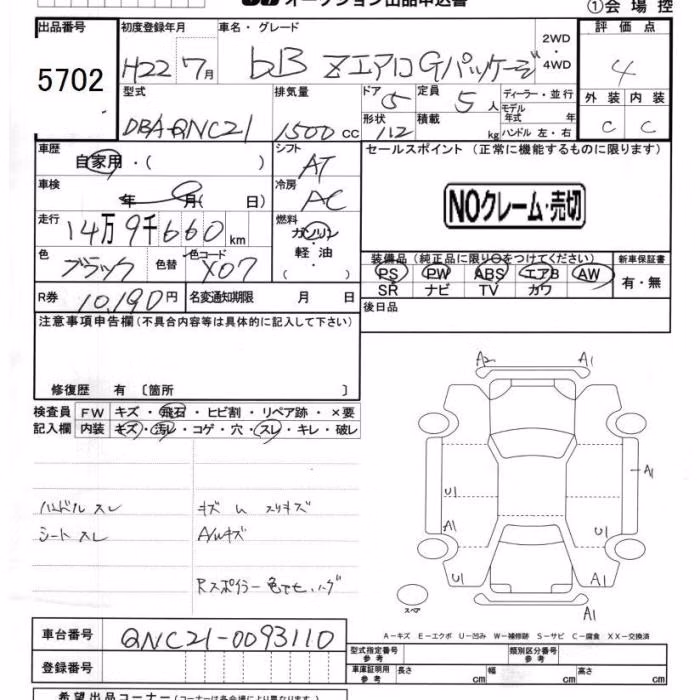 オークション出品申込書
①会場控
出品番号
5702
初度登録年月
H22 7月
車名・グレード
bB ZエアロGパッケージ
2WD
・
4WD
評価点
4
型式
DBA-QNC21
排気量
1500cc
ドア
5
定員
5人
ディーラー・並行
形状
112
積載
kg
モデル
年式 年
ハンドル 左・右
外装 内装
C C
車歴
自家用・( )
シフト
AT
車検
年 月( 日)
冷房
AC
走行
14万9千660km
燃料
ガソリン
軽油
( )
色
ブラック
色替
色コード
X07
R券
10,190円
名変通知期限 月 日
セールスポイント (正常に機能するものに限ります)
NOクレーム・売切
装備品(純正品に限り○をつけてください)
PS PW ABS エアB AW
SR ナビ TV カワ
新車保証書
有・無
後日品
注意事項申告欄(不具合内容等は具体的に記入して下さい)
修復歴 有 〔箇所 〕
検査員
記入欄
FW キズ・飛石・ヒビ割・リペア跡・×要
内装 キズ・汚レ・コゲ・穴・スレ・キレ・破レ
ハンドル スレ
シート スレ
キズ ム スリキズ
A/Wキズ
Rスポイラー 色でセ ハゲ
A2 A1
A1
U1
A1
U1
U1
A1
A1
スペア
A-キズ E-エクボ U-凹み W-補修跡 S-サビ C-腐食 XX-交換済
車台番号
QNC21-0093110
登録番号
型式指定番号
参考
類別区分番号
参考
車庫証明用
参考
長さ cm 幅 cm 高さ cm
希望出品コーナー(コーナーは各会場により異なります)